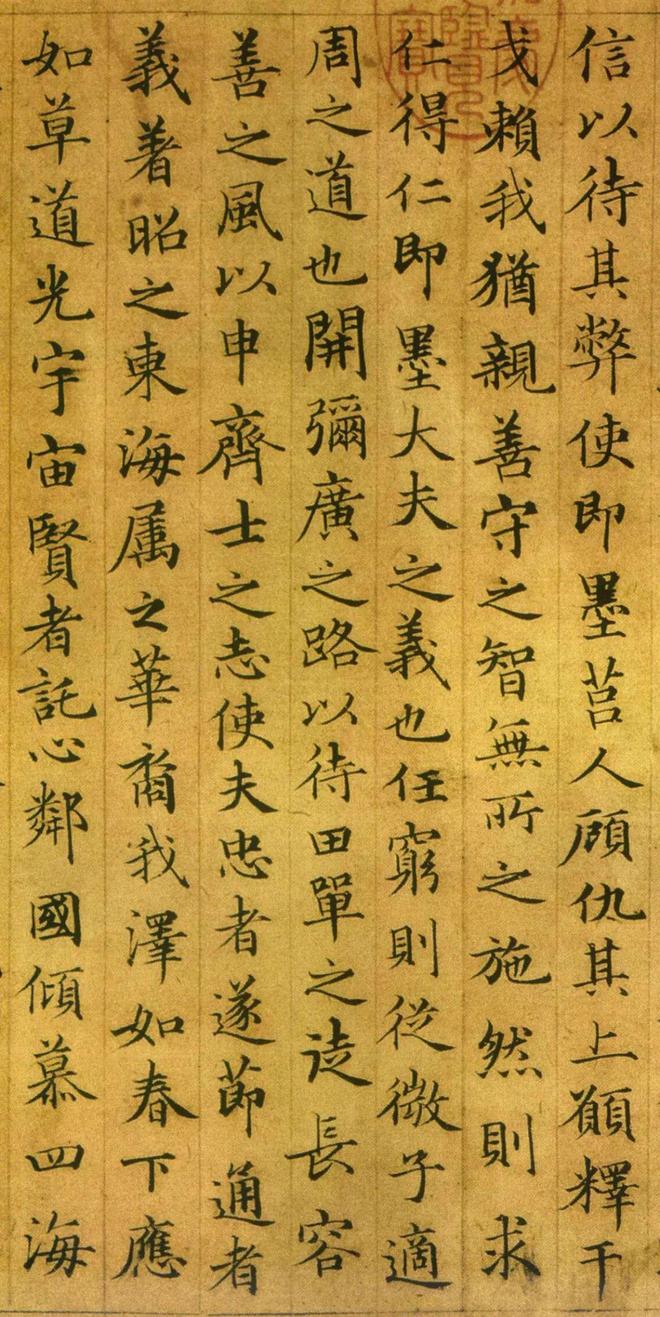 信以待其弊使即墨莒人顧仇其上願釋干
戈賴我猶親善守之智無所之施然則求
仁得仁即墨大夫之義也任窮則從微子適
周之道也開彌廣之路以待田單之徒長容
善之風以申齊士之志使夫忠者遂節通者
義著昭之東海属之華裔我澤如春下應
如草道光宇宙賢者託心鄰國傾慕四海